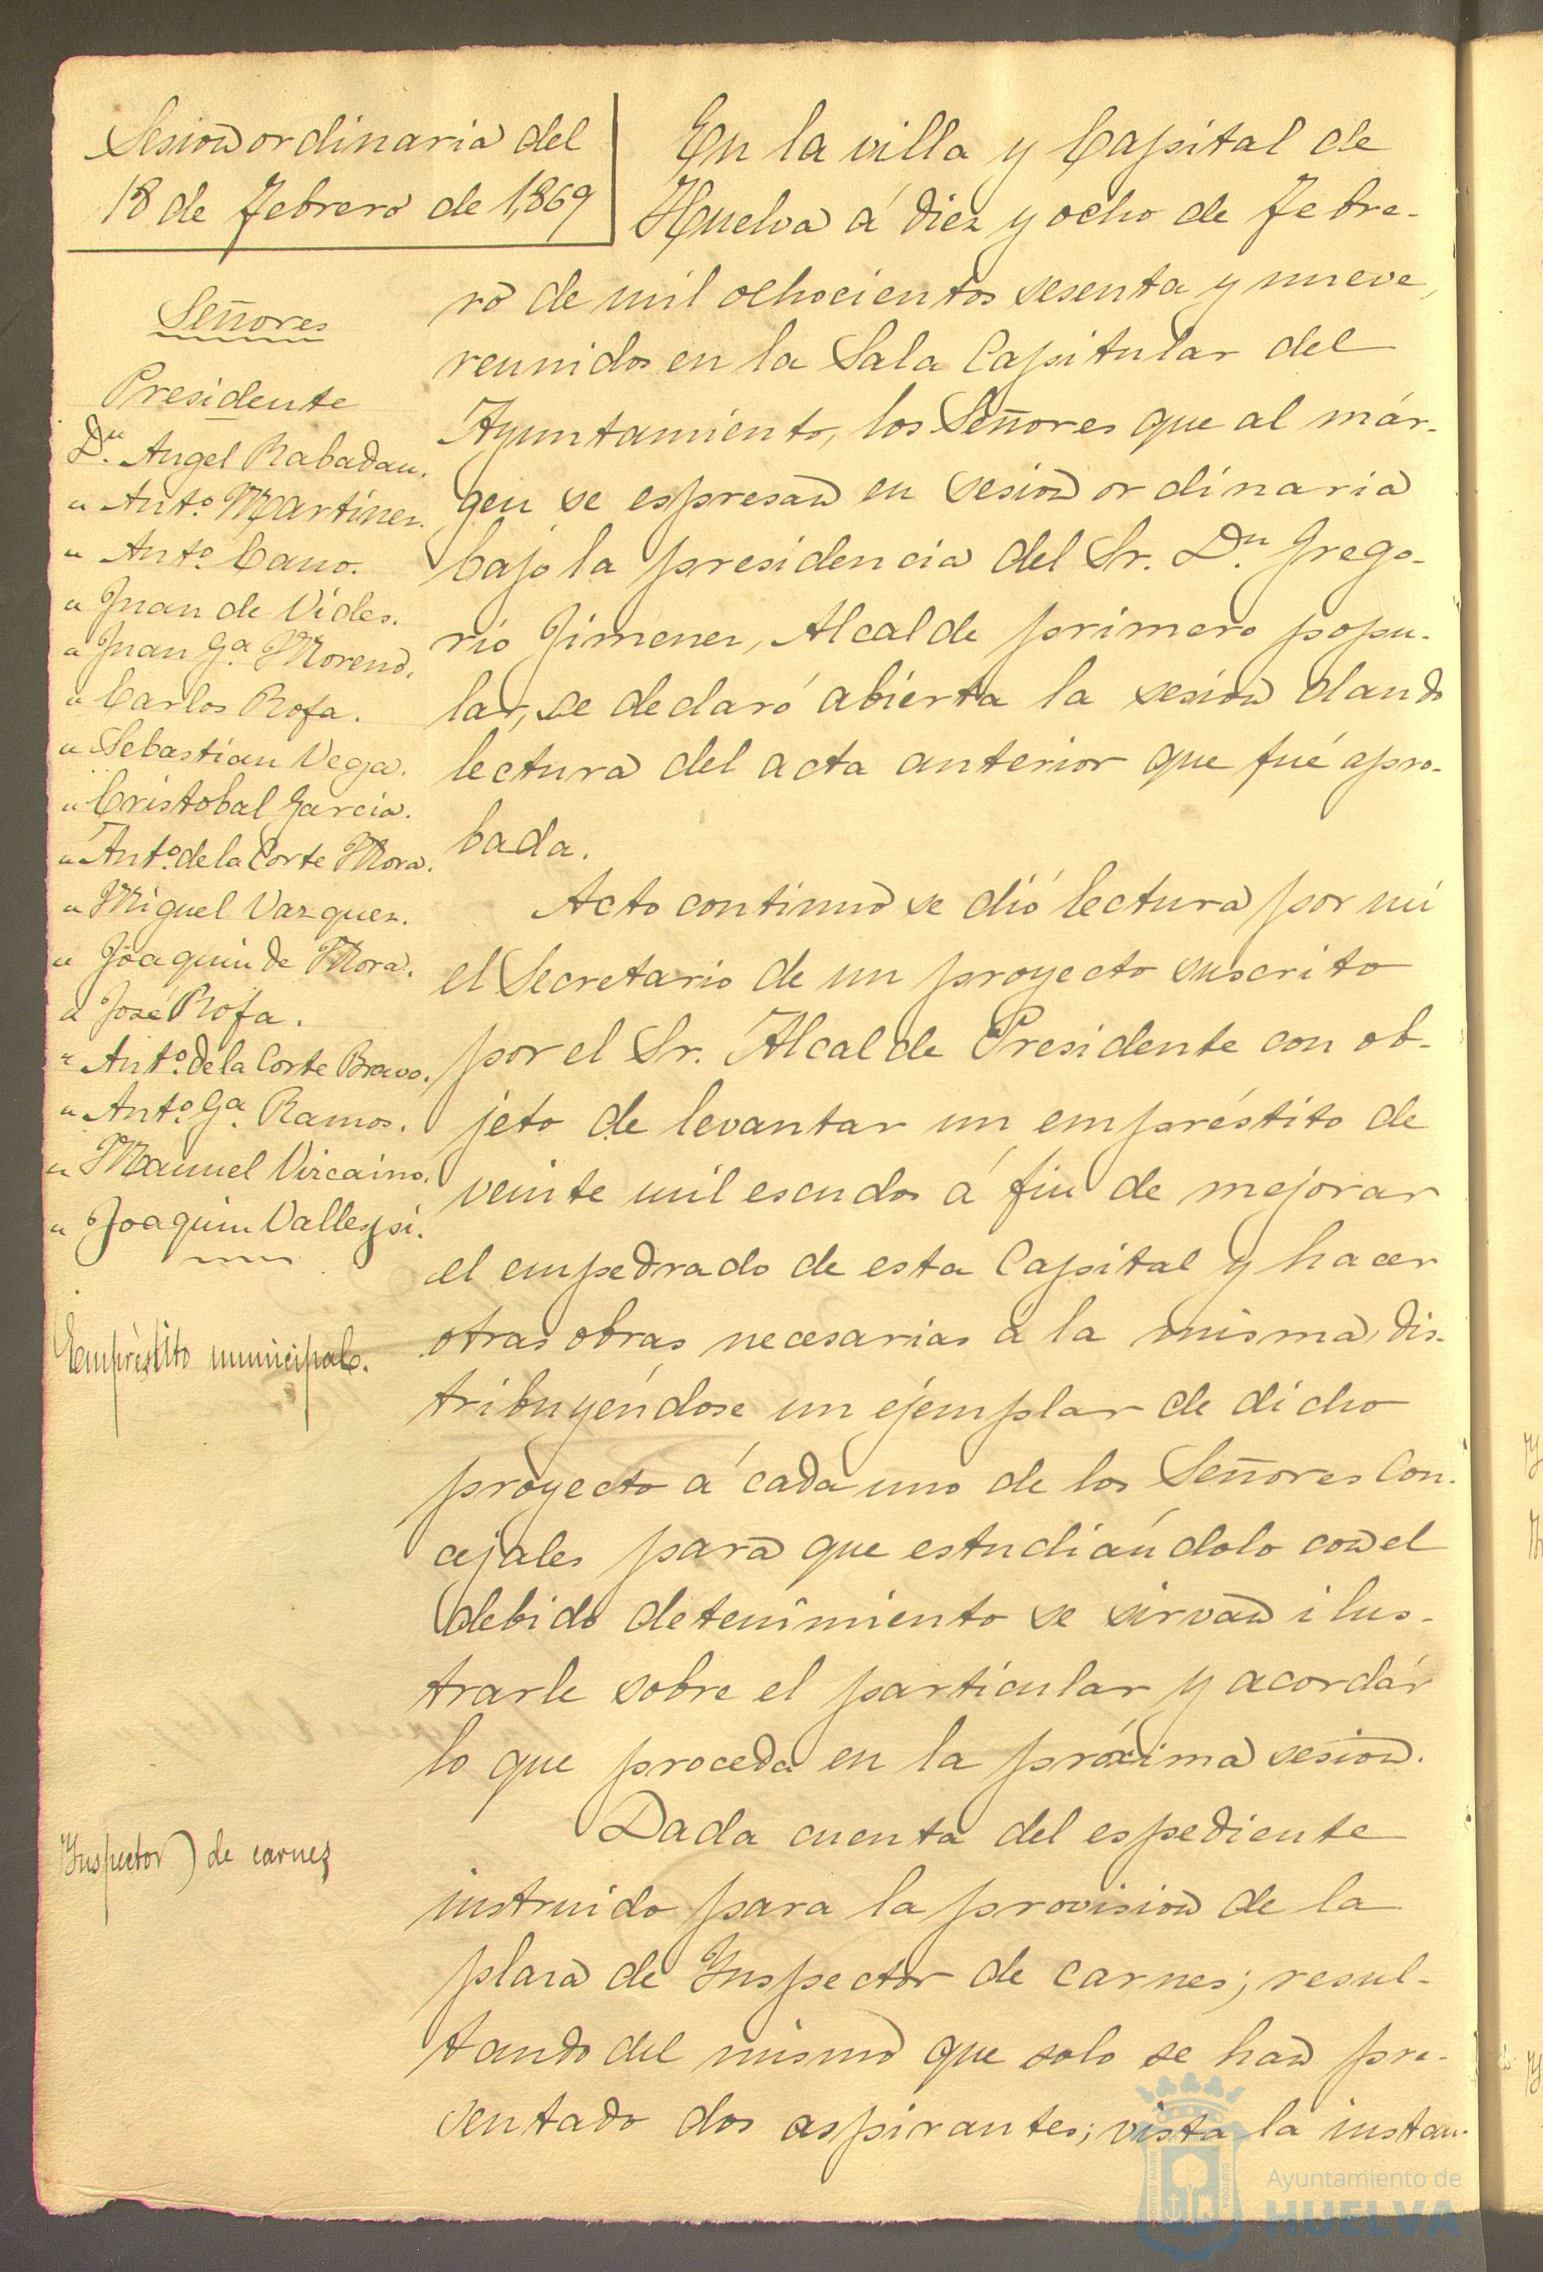 Sesion ordinaria del
18 de Febrero de 1,869
Señores
Presidente
Dn. Angel Rabadan.
" Anto. Martinez.
" Anto. Cano.
" Juan de Vides.
" Juan Ga. Moreno.
" Carlos Rofa.
" Sebastian Vega.
" Cristobal Garcia.
" Anto. de la Corte Mora.
" Miguel Vazquez.
" Joaquin de Mora.
" José Rofa.
" Anto. de la Corte Bravo.
" Anto. Ga. Ramos.
" Manuel Vizcaino.
" Joaquin Vallespi.
Empréstito municipal.
Inspector de carnes
En la villa y Capital de
Huelva á diez y ocho de Febre-
ro de mil ochocientos sesenta y nueve,
reunidos en la Sala Capitular del
Ayuntamiento, los Señores que al már-
gen se espresan en sesion ordinaria
bajo la presidencia del Sr. Dn. Grego-
rio Jimenez, Alcalde primero popu-
lar, se declaró abierta la sesion dando
lectura del acta anterior que fué apro-
bada.
Acto continuo se dió lectura por mi
el Secretario de un proyecto suscrito
por el Sr. Alcalde Presidente con ob-
jeto de levantar un empréstito de
veinte mil escudos á fin de mejorar
el empedrado de esta Capital y hacer
otras obras necesarias á la misma, dis-
tribuyéndose un ejemplar de dicho
proyecto á cada uno de los Señores Con-
cejales para que estudiándolo con el
debido detenimiento se sirvan ilus-
trarle sobre el particular y acordar
lo que proceda en la próxima sesion.
Dada cuenta del espediente
instruido para la provision de la
plaza de Inspector de carnes; resul-
tando del mismo que solo se han pre-
sentado dos aspirantes; vista la instan-
Ayuntamiento de
HUELVA